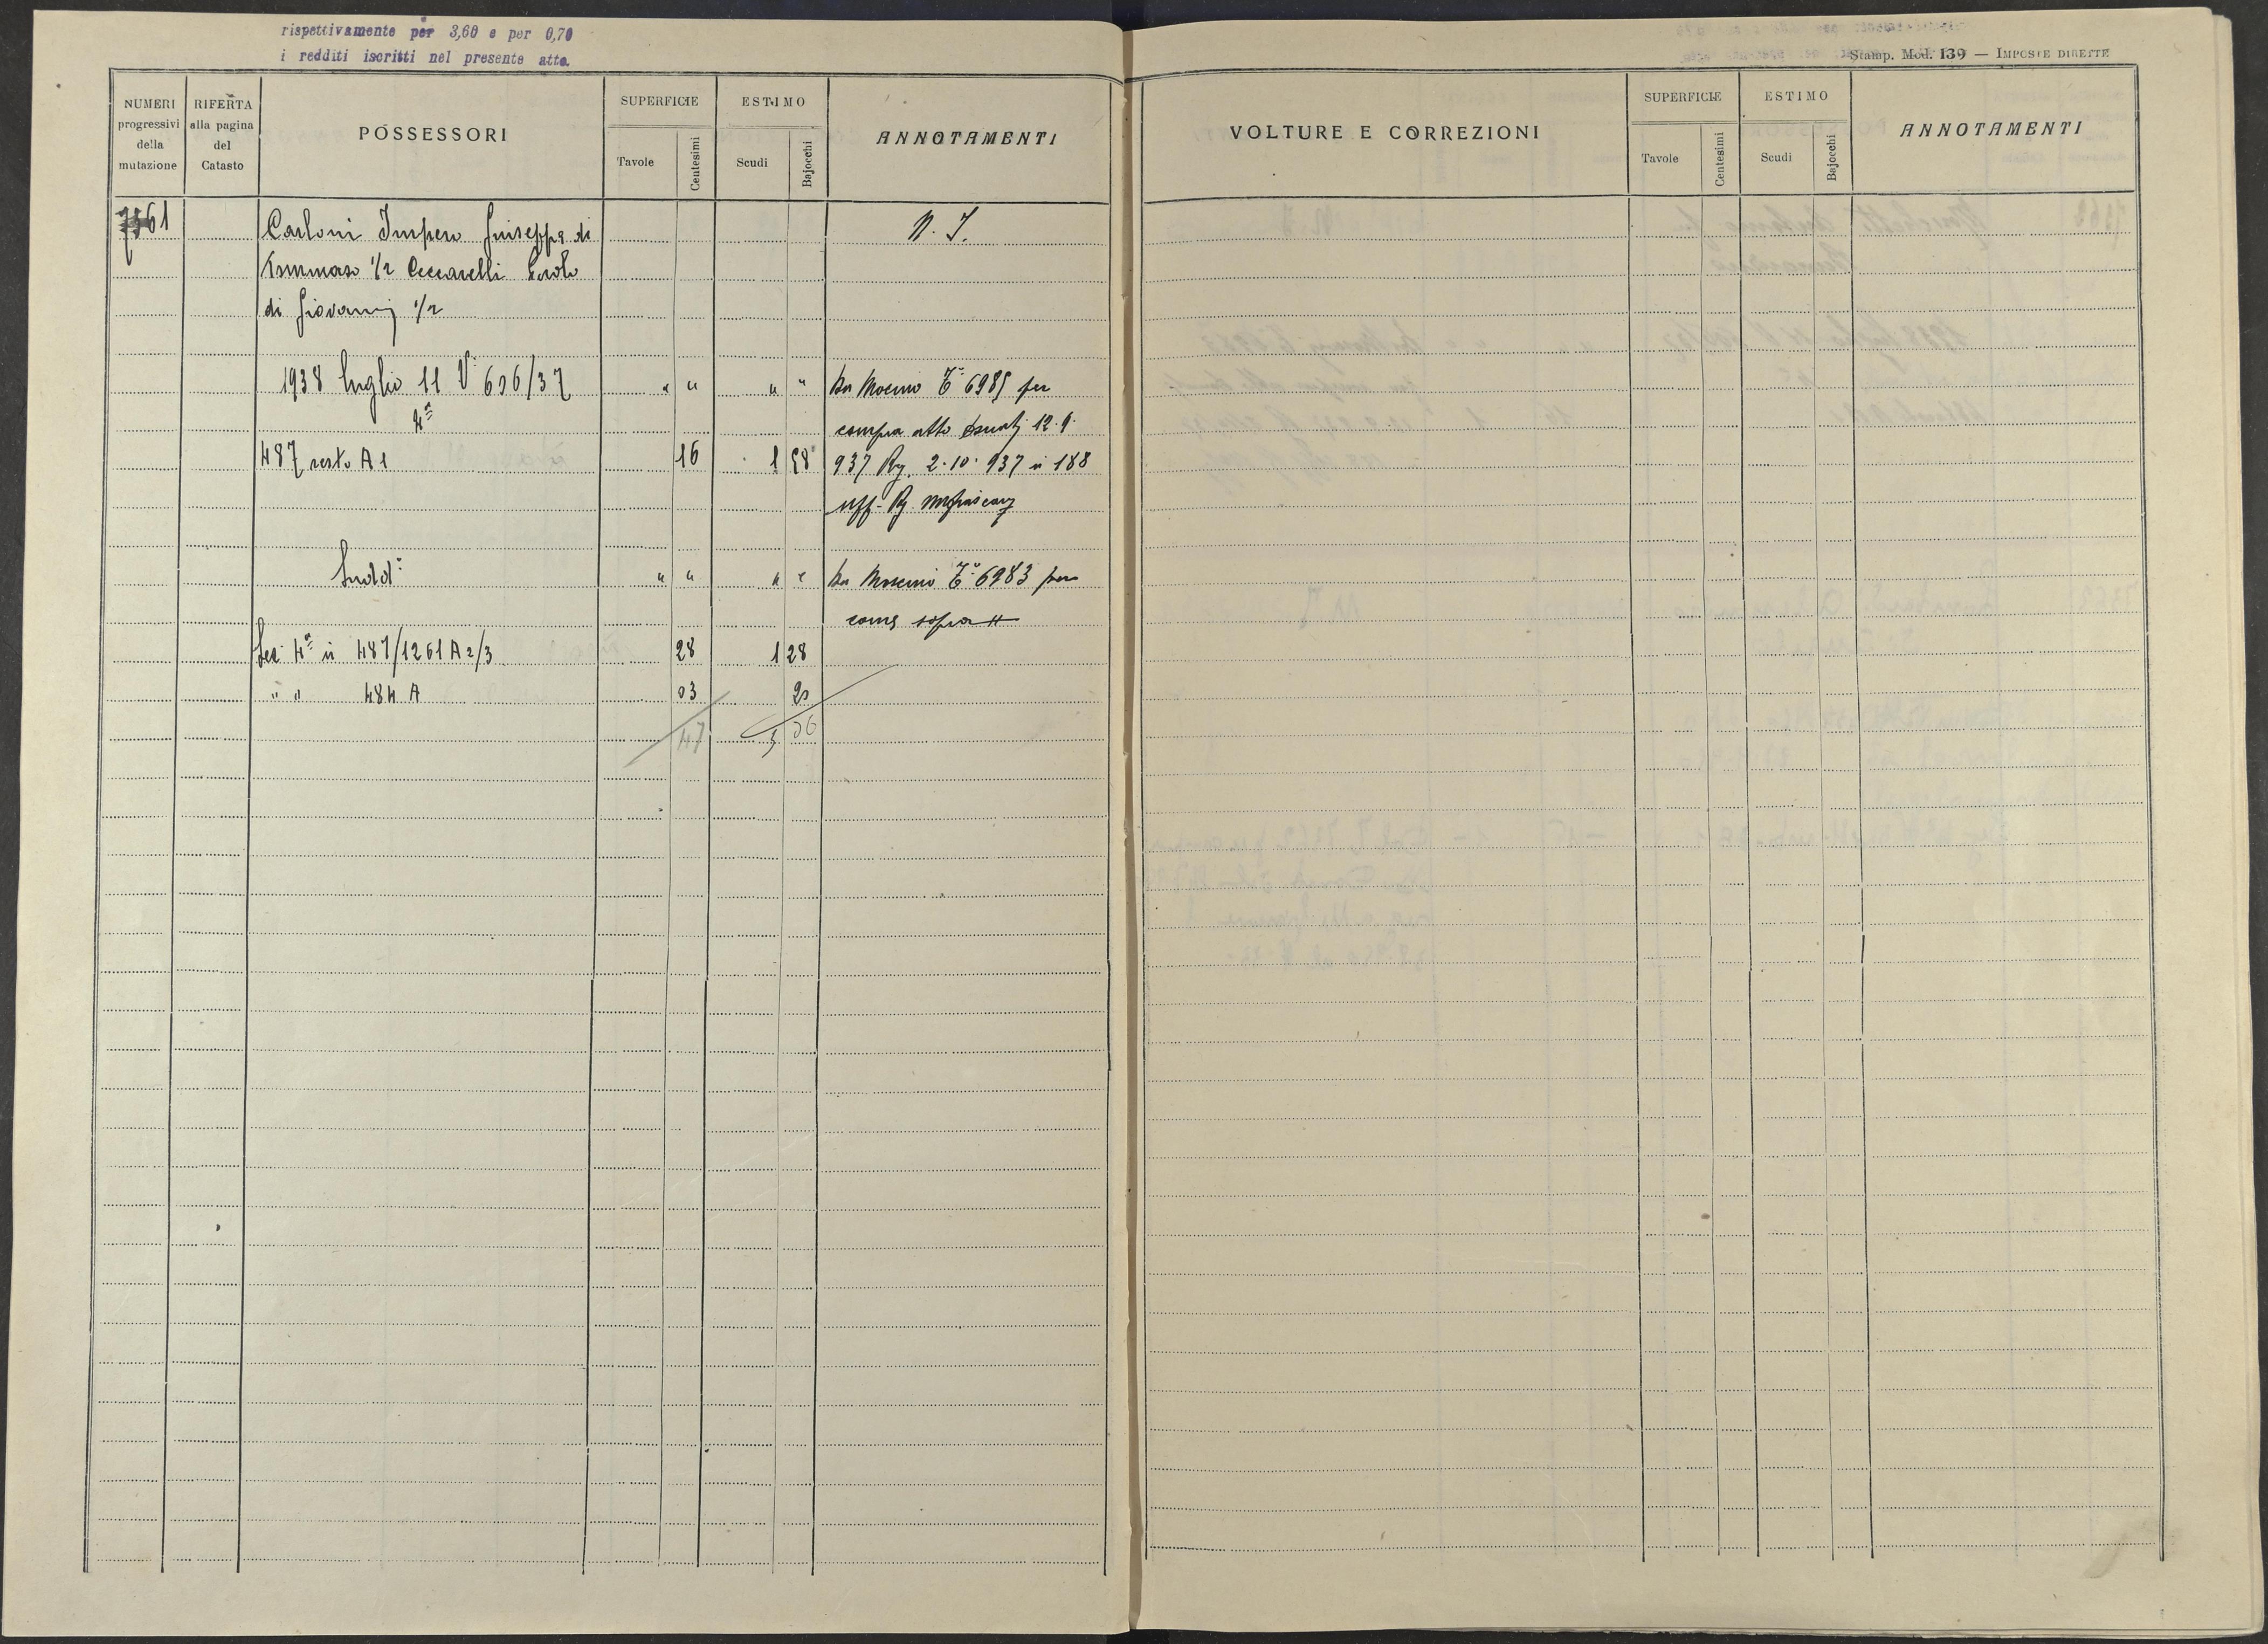 rispettivamente per 3,60 e per 0,70
i redditi iscritti nel presente atto.
Stamp. Mod. 139 — IMPOSTE DIRETTE
NUMERI progressivi della mutazione
RIFERTA alla pagina del Catasto
POSSESSORI
SUPERFICIE
Tavole
Centesimi
ESTIMO
Scudi
Bajocchi
ANNOTAMENTI
VOLTURE E CORREZIONI
SUPERFICIE
Tavole
Centesimi
ESTIMO
Scudi
Bajocchi
ANNOTAMENTI
7361 Carloni Impero Giuseppe di N. I.
Tommaso 1/2 Ceccarelli
di Giovanni 1/2
1938 luglio 11 V. 606/37 " " " " Da T. 6985 per
4ª compra atto 12.9.
487 resto A 1 16 1 88 937 Rg. 2.10.937 n 188
uff. Rg.
Sudd. " " " " Da T. 6983 per
come sopra
Sez 4ª n 487/1261 A 2/3 28 1 28
" " 484 A 03 20
47 3 36